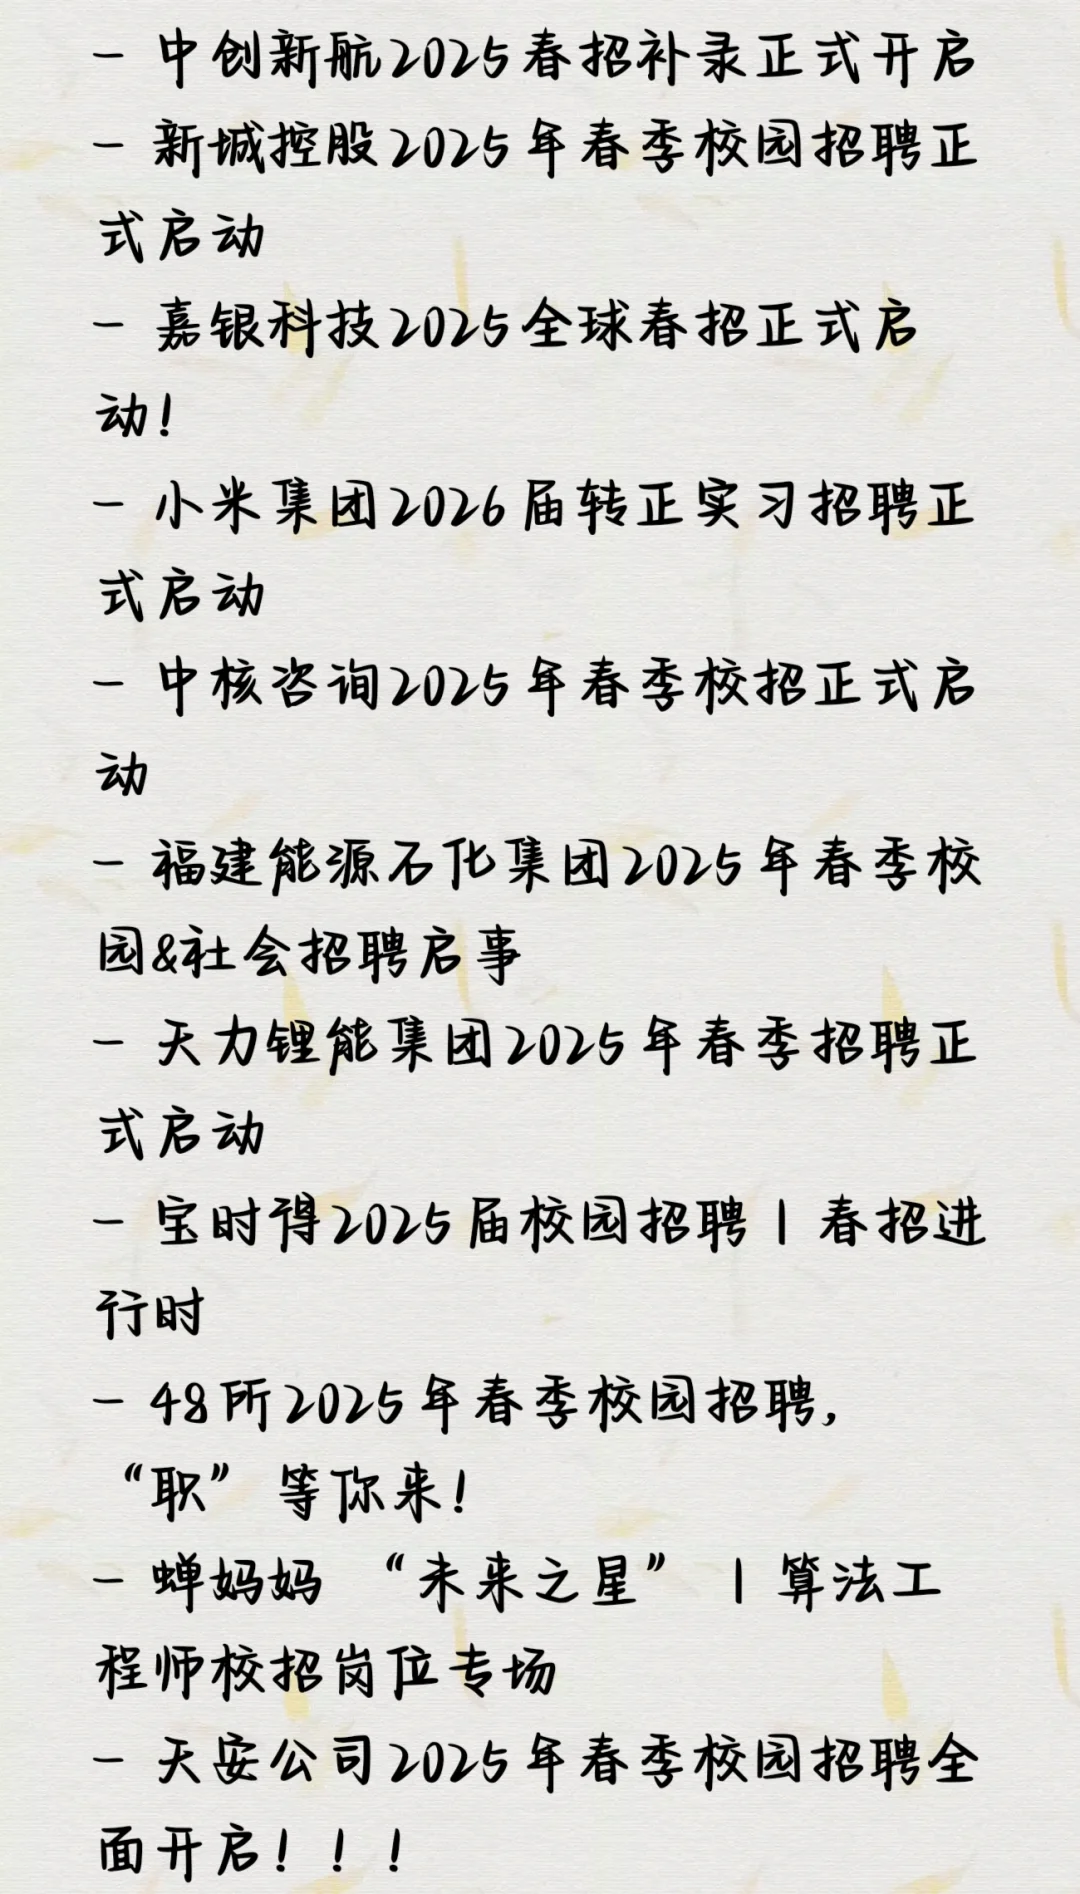 - 中创新航2025春招补录正式开启
- 新城控股2025年春季校园招聘正
式启动
- 嘉银科技2025全球春招正式启
动！
- 小米集团2026届转正实习招聘正
式启动
- 中核咨询2025年春季校招正式启
动
- 福建能源石化集团2025年春季校
园&社会招聘启事
- 天力锂能集团2025年春季招聘正
式启动
- 宝时得2025届校园招聘丨春招进
行时
- 48所2025年春季校园招聘，
“职”等你来！
- 蝉妈妈 “未来之星” 丨算法工
程师校招岗位专场
- 天安公司2025年春季校园招聘全
面开启！！！